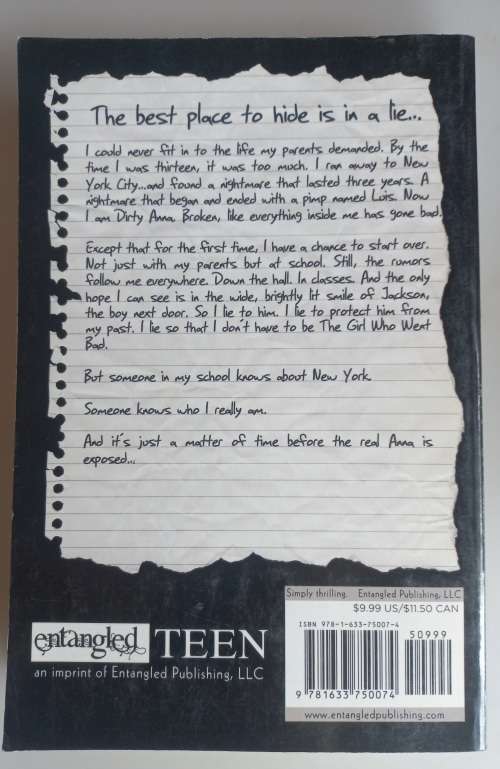 The best place to hide is in a lie...
I could never fit in to the life my parents demanded. By the
time I was thirteen, it was too much. I ran away to New
York City...and found a nightmare that lasted three years. A
nightmare that began and ended with a pimp named Luis. Now
I am Dirty Anna. Broken, like everything inside me has gone bad.
Except that for the first time, I have a chance to start over.
Not just with my parents but at school. Still, the rumors
follow me everywhere. Down the hall. In classes. And the only
hope I can see is in the wide, brightly lit smile of Jackson,
the boy next door. So I lie to him. I lie to protect him from
my past. I lie so that I don't have to be The Girl Who Went
Bad.
But someone in my school knows about New York.
Someone knows who I really am.
And it's just a matter of time before the real Anna is
exposed...
Simply thrilling. Entangled Publishing, LLC
$9.99 US/$11.50 CAN
ISBN 978-1-633-75007-4
50999
9 781633 750074
www.entangledpublishing.com
entangled TEEN
an imprint of Entangled Publishing, LLC